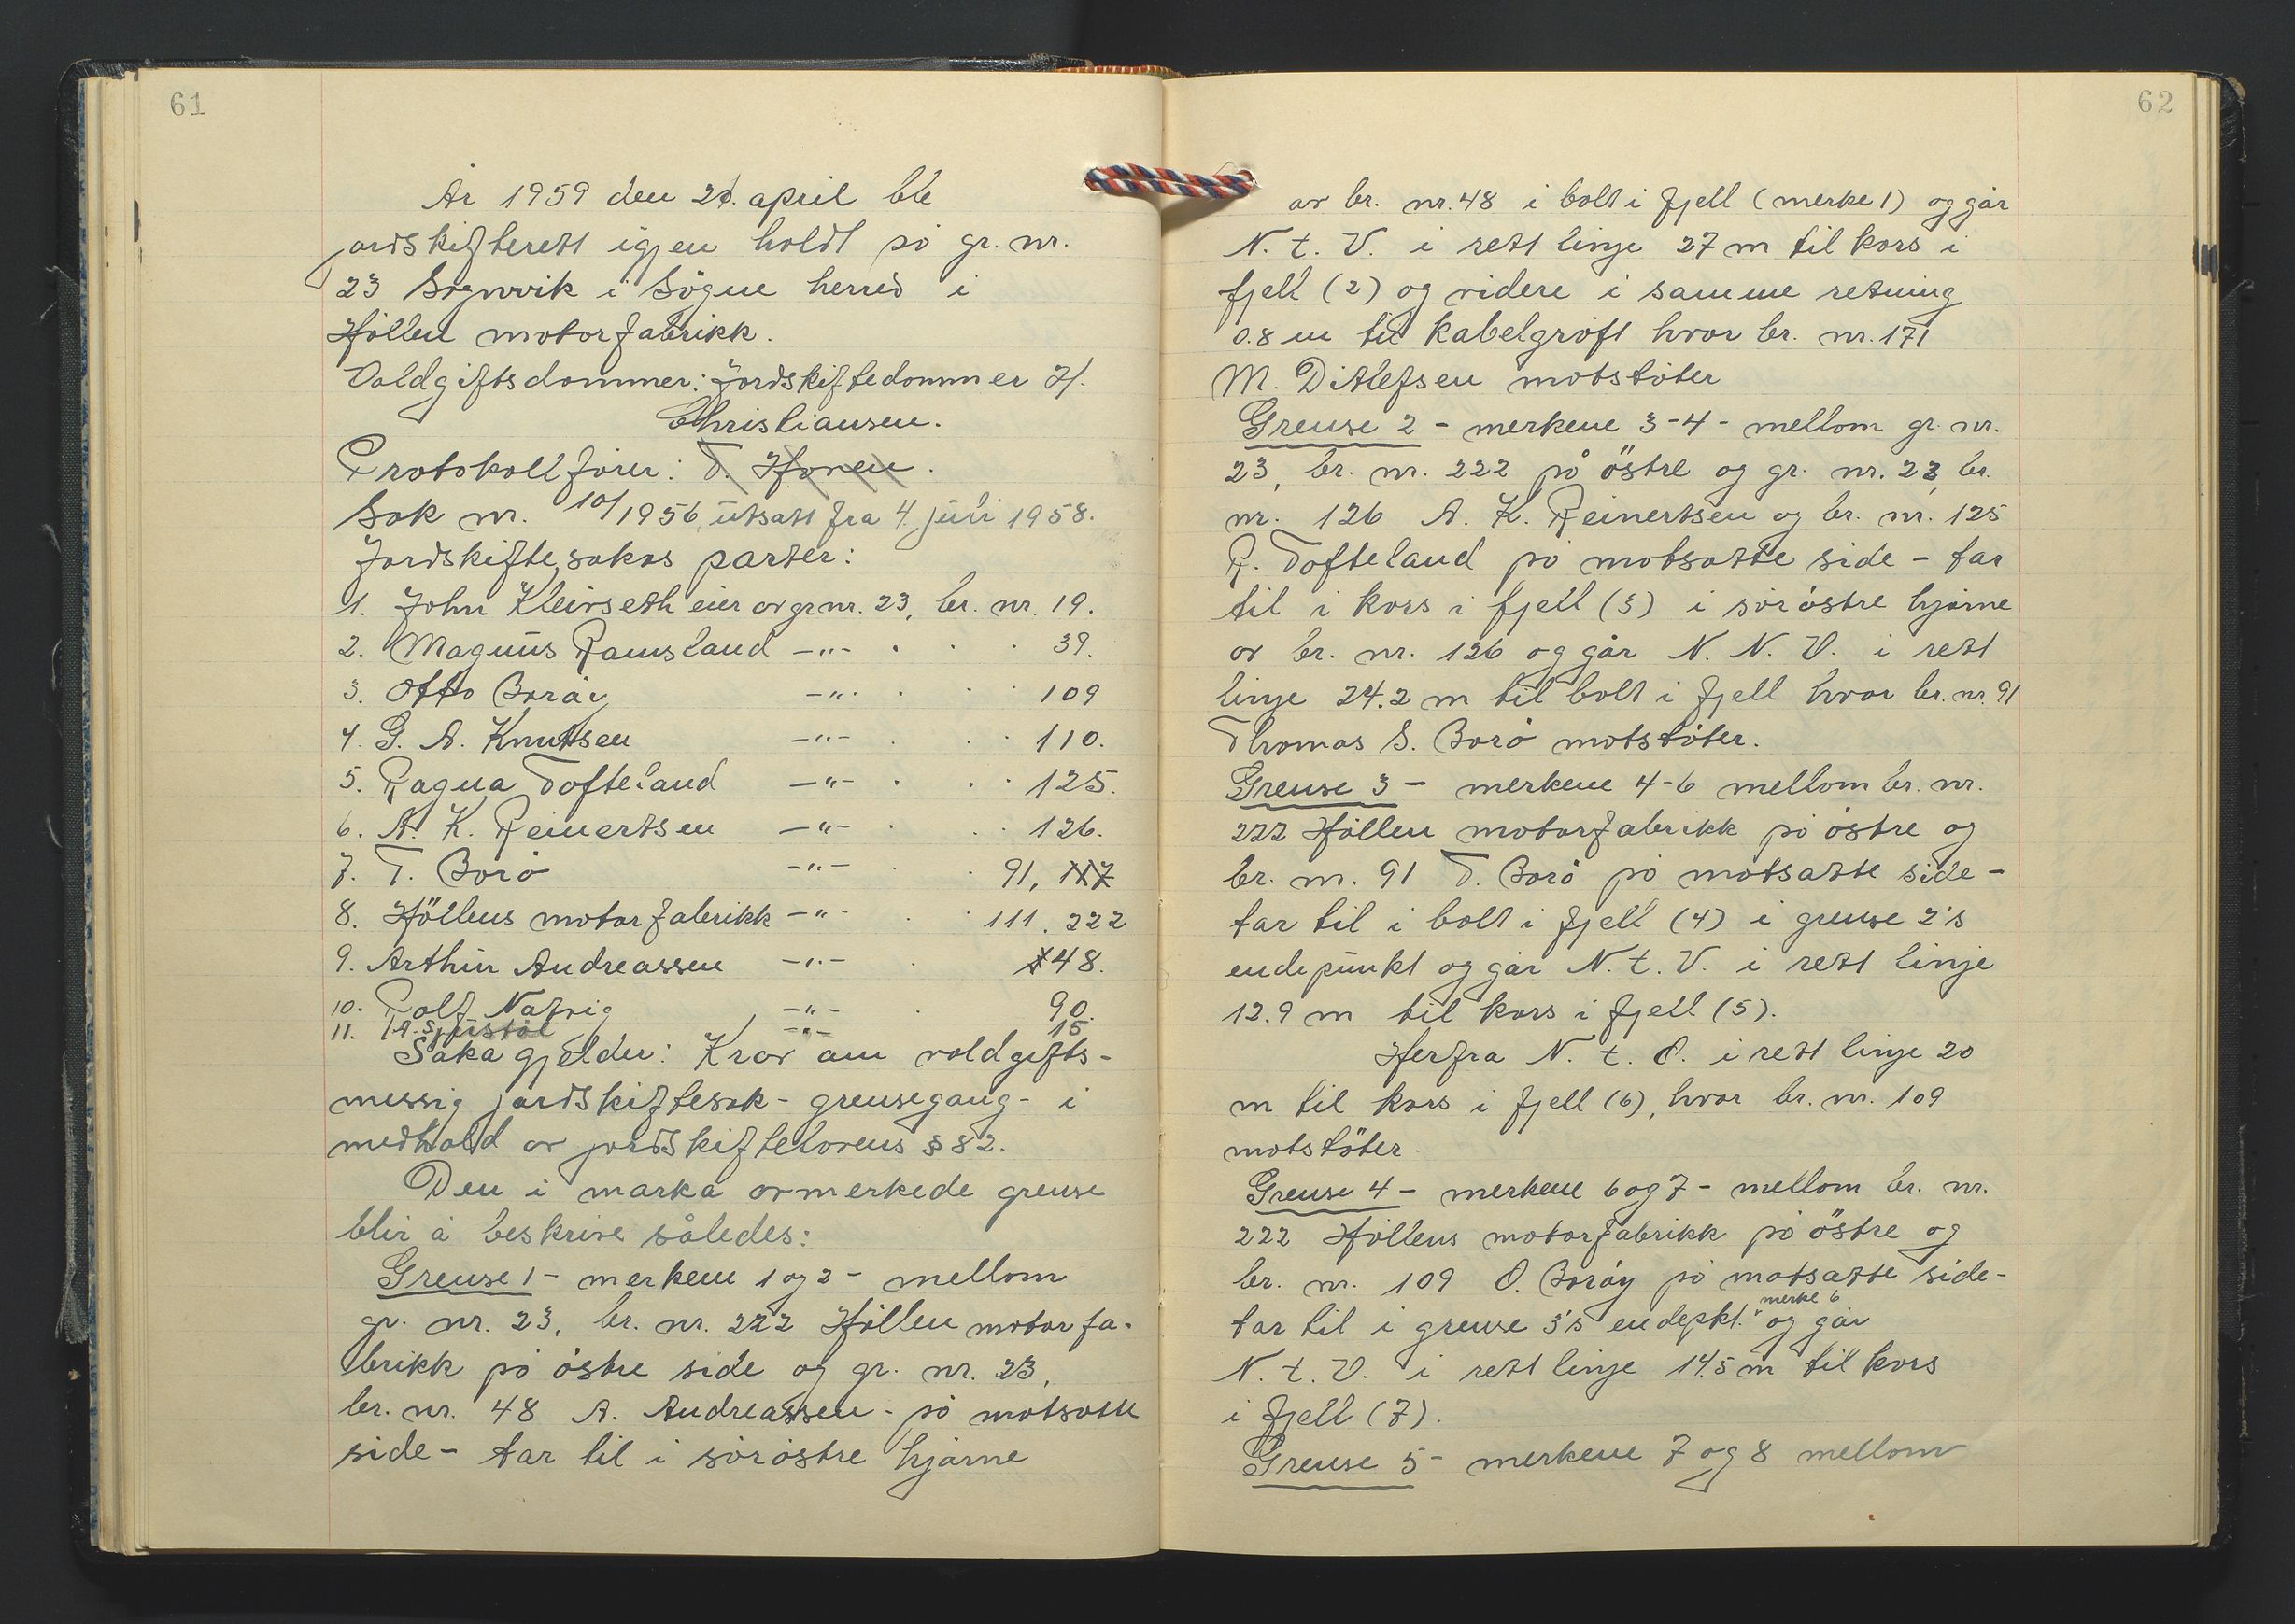 61
År 1959 den 21. april ble
jordskifterett igjen holdt på gr. nr.
23 Søgnvik i Søgne herred i
Höllen motorfabrikk.
Voldgiftsdommer: Jordskiftedommer H.
Christiansen.
Protokollfører: T. Hornen.
Sak nr. 10/1956 utsatt fra 4. juli 1958.
Jordskiftesakas parter:
1. John Kleivseth eier av gr nr. 23, br. nr. 19.
2. Magnus Ramsland -"- . . . 39.
3. Otto Borøy -"- . . . 109
4. G. A. Knutsen -"- . . . 110.
5. Ragna Tofteland -"- . . . 125.
6. A. K. Reinertsen -"- . . . 126.
7. T. Borø -"- . . 91, 117
8. Höllens motorfabrikk -"- . . 111. 222
9. Arthur Andreassen -"- . 48.
10. Rolf Natvig -"- . 90.
11. A. Sjustöl -"- 15
Saka gjelder: Krav om voldgifts-
messig jordskiftesak - grensegang - i
medhold av jordskiftelovens § 82.
Den i marka avmerkede grense
blir å beskrive således:
Grense 1 - merkene 1 og 2 - mellom
gr. nr. 23, br. nr. 222 Höllen motorfa-
brikk på östre side og gr. nr. 23,
br. nr. 48 A. Andreassen - på motsatte
side - tar til i söröstre hjörne
62
av br. nr. 48 i bolt i fjell (merke 1) og går
N. t. V. i rett linje 27 m til kors i
fjell (2) og videre i samme retning
0.8 m til kabelgröft hvor br. nr. 171
M. Ditlefsen motstöter
Grense 2 - merkene 3-4 - mellom gr. nr.
23, br. nr. 222 på östre og gr. nr. 23, br.
nr. 126 A. K. Reinertsen og br. nr. 125
R. Tofteland på motsatte side - tar
til i kors i fjell (3) i söröstre hjörne
av br. nr. 126 og går N. N. V. i rett
linje 24.2 m til bolt i fjell hvor br. nr. 91
Thomas S. Borö motstöter.
Grense 3 - merkene 4-6 mellom br. nr.
222 Höllen motorfabrikk på östre og
br. nr. 91 T. Borö på motsatte side -
tar til i bolt i fjell (4) i grense 2's
endepunkt og går N. t. V. i rett linje
12.9 m til kors i fjell (5).
Herfra N. t. O. i rett linje 20
m til kors i fjell (6), hvor br. nr. 109
motstöter.
Grense 4 - merkene 6 og 7 - mellom br. nr.
222 Höllens motorfabrikk på östre og
br. nr. 109 O. Boröy på motsatte side -
tar til i grense 3's endepkt. merke 6 og går
N. t. V. i rett linje 14.5 m til kors
i fjell (7).
Grense 5 - merkene 7 og 8 mellom